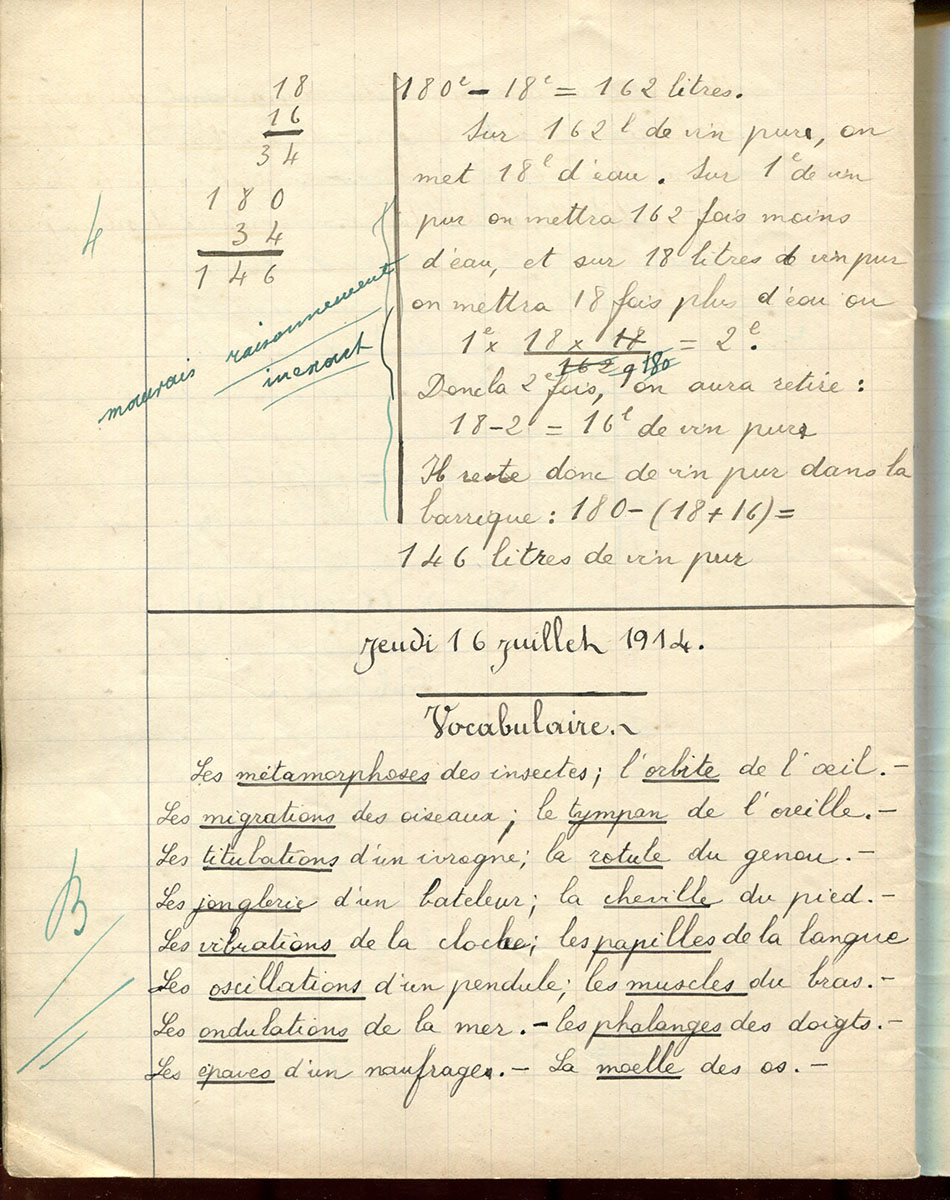 18
16
34
180
34
146
4
mauvais raisonnement
inexact
180ˡ - 18ˡ = 162 litres.
Sur 162ˡ de vin pur, on
met 18ˡ d'eau. Sur 1ˡ de vin
pur on mettra 162 fois moins
d'eau, et sur 18 litres de vin pur
on mettra 18 fois plus d'eau ou
1ˡ x 18 x 18 = 2ˡ.
162 9 180
Donc la 2ᵉ fois, on aura retiré :
18-2 = 16ˡ de vin pur
Il reste donc de vin pur dans la
barrique : 180-(18+16)=
146 litres de vin pur
Jeudi 16 Juillet 1914.
Vocabulaire.~
Les métamorphoses des insectes; l'orbite de l'œil.-
Les migrations des oiseaux; le tympan de l'oreille.-
Les titubations d'un ivrogne; la rotule du genou.-
Les jonglerie d'un bateleur; la cheville du pied.-
B
Les vibrations de la cloche; les papilles de la langue
Les oscillations d'un pendule; les muscles du bras.-
Les ondulations de la mer.- les phalanges des doigts.-
Les épaves d'un naufrage.- La moelle des os.-